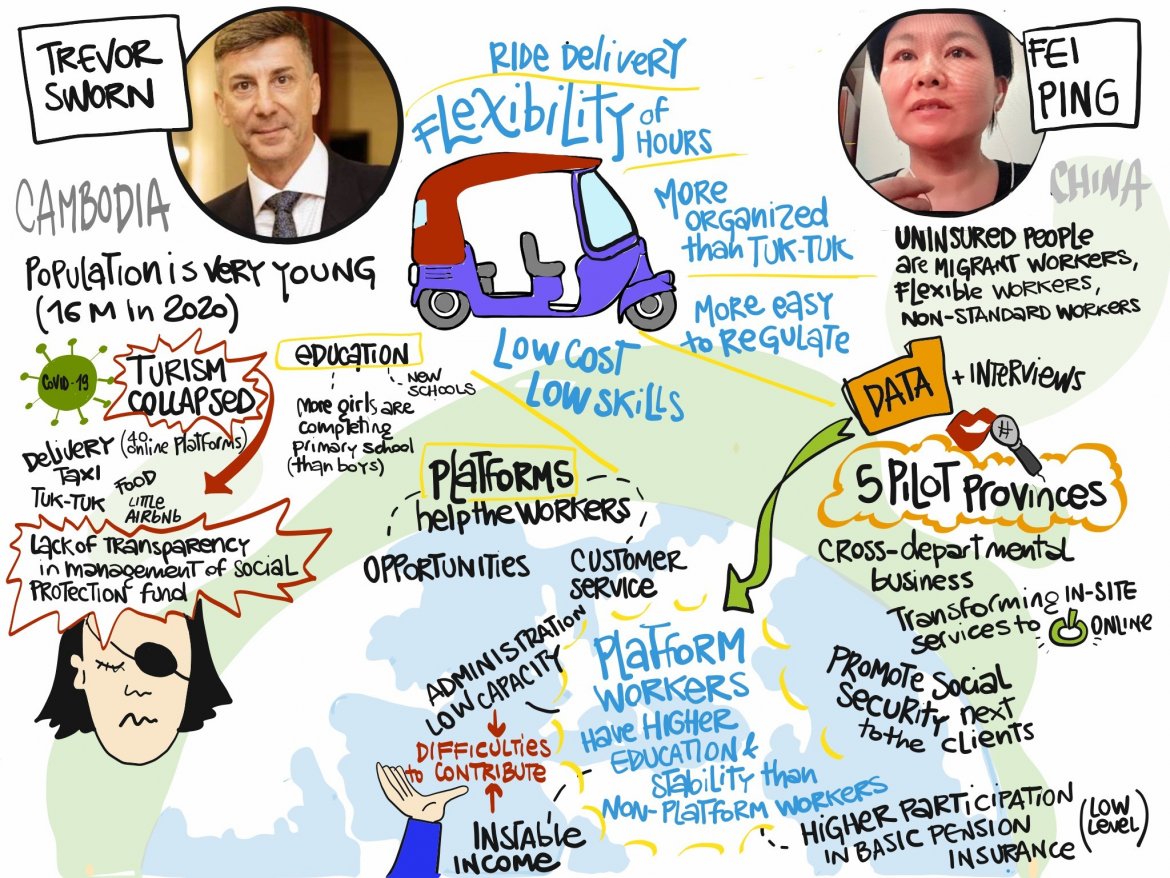 TREVOR
SWORN
CAMBODIA
POPULATION IS VERY YOUNG
(16 M IN 2020)
COVID-19
TURISM
COLLAPSED
DELIVERY (40. online Platforms)
TAXI
TUK-TUK
FOOD
LITTLE
AIRBNB
LACK OF TRANSPARENCY
in management of social
PROTECTION fund
EDUCATION
NEW
SCHOOLS
More girls are
completing
primary school
(than boys)
RIDE DELIVERY
FLEXIBILITY OF
HOURS
MORE
ORGANIZED
than TUK-TUK
MORE EASY
to REGULATE
LOW COST
LOW SKILLS
PLATFORMS
help the WORKERS
OPPORTUNITIES
CUSTOMER
SERVICE
ADMINISTRATION
LOW CAPACITY
DIFFICULTIES
to CONTRIBUTE
INSTABLE
INCOME
PLATFORM
WORKERS
HAVE HIGHER
EDUCATION &
STABILITY than
NON-PLATFORM WORKERS
FEI
PING
CHINA
UNINSURED PEOPLE
are MIGRANT WORKERS,
FLEXIBLE WORKERS,
NON-STANDARD WORKERS
DATA + INTERVIEWS
#
5 PILOT PROVINCES
CROSS-departmental
business
Transforming IN-SITE
services to ONLINE
PROMOTE SOCIAL
SECURITY next
to the clients
HIGHER PARTICIPATION
IN BASIC PENSION
INSURANCE
(LOW
LEVEL)